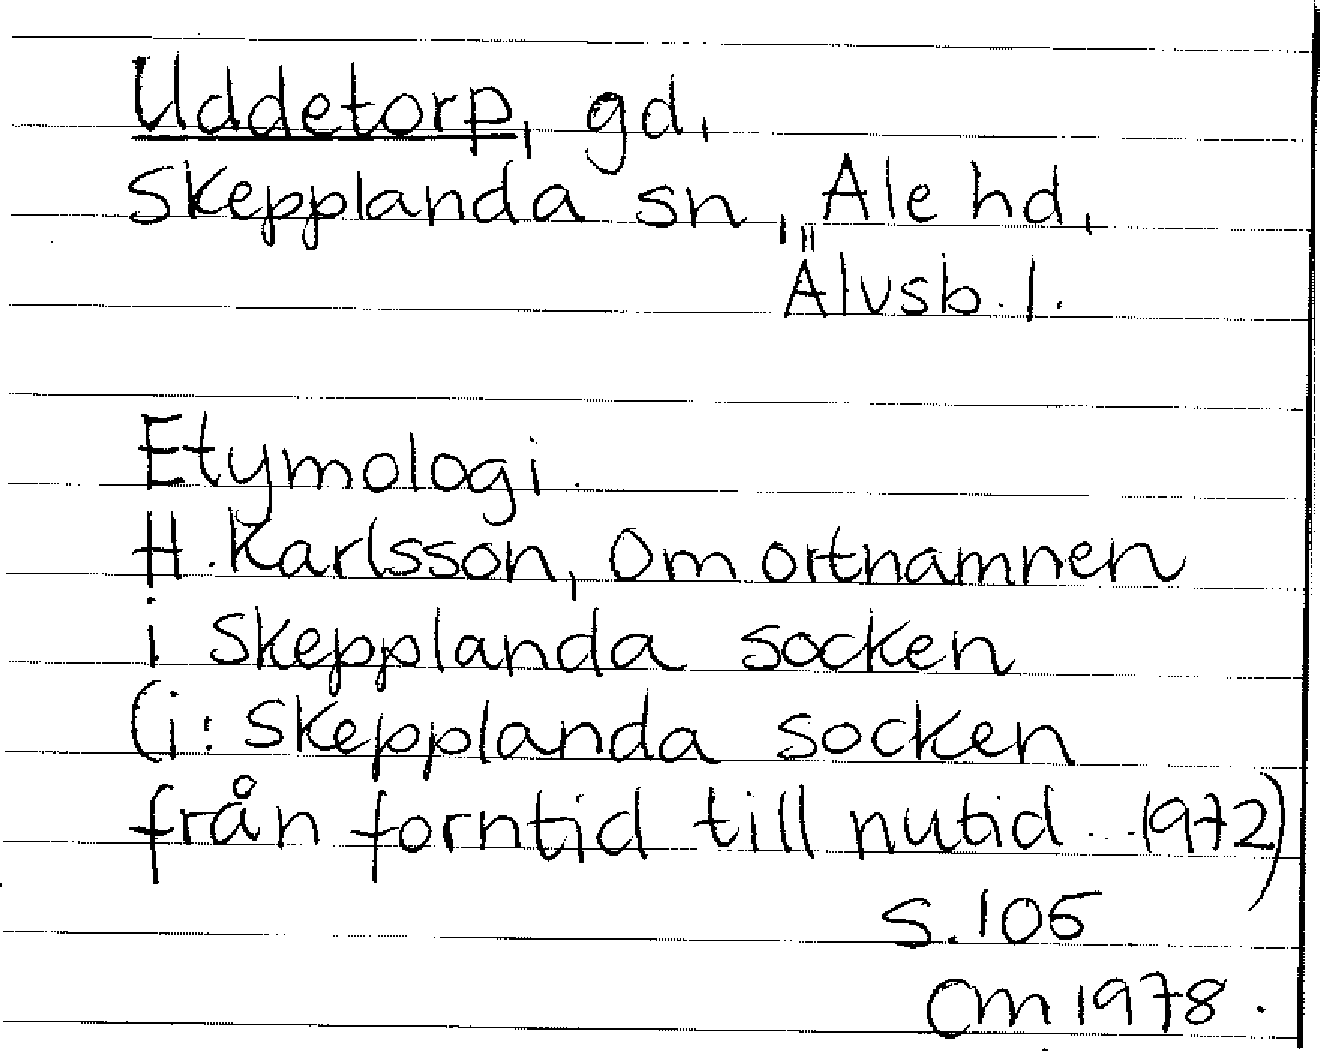 Uddetorp, gd,
Skepplanda sn, Ale hd,
Älvsb. l.
Etymologi.
H. Karlsson, Om ortnamnen
i Skepplanda socken
(i: Skepplanda socken
från forntid till nutid. 1972)
s. 105
CM 1978.